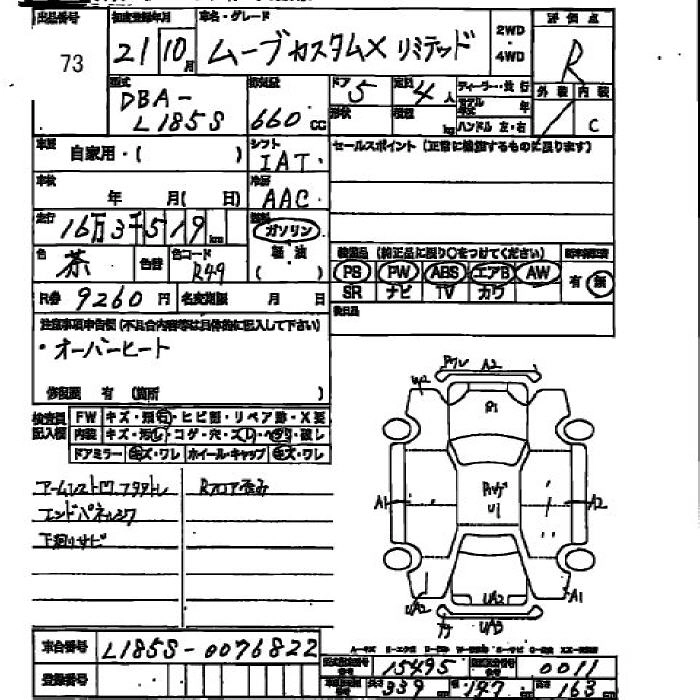 出品番号 73
初度登録年月 21 10月
車名・グレード ムーブカスタムX リミテッド
2WD・4WD
評価点 R
外装 内装 C
型式 DBA-L185S
排気量 660 CC
ドア 5
形状
定員 4人
積量 kg
ディーラー・並行
モデル年式 年
ハンドル 左・右
車歴 自家用・( )
シフト IAT
セールスポイント (正常に機能するものに限ります)
車検 年 月( 日)
冷房 AAC
走行 16万3千519km
燃料 ガソリン・軽油 ( )
色 茶 色替 色コード R49
装備品 (純正品に限り○をつけてください)
PS PW ABS エアB AW
SR ナビ TV カワ
有・無
R券 9260円 名変期限 月 日
後日品
注意事項申告欄 (不具合内容等は具体的に記入して下さい)
・オーバーヒート
修復歴 有 (箇所 )
検査員記入欄
FW キズ・飛石・ヒビ割・リペア跡・X要
内装 キズ・汚レ・コゲ・穴・スレ・ヘタリ・破レ
ドアミラー キズ・ワレ ホイール・キャップ キズ・ワレ
Rフロア歪み
エンドパネルシワ
下廻りサビ
A2
W2
P1
A1
U1
A2
UA2
UA2
A1
UA3
車台番号 L185S-0076822
登録番号
15495 0011
長さ 339 幅 147 高さ 163